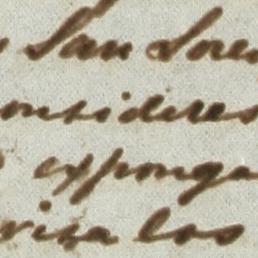 San Loren
onsideres
exponga
visa los